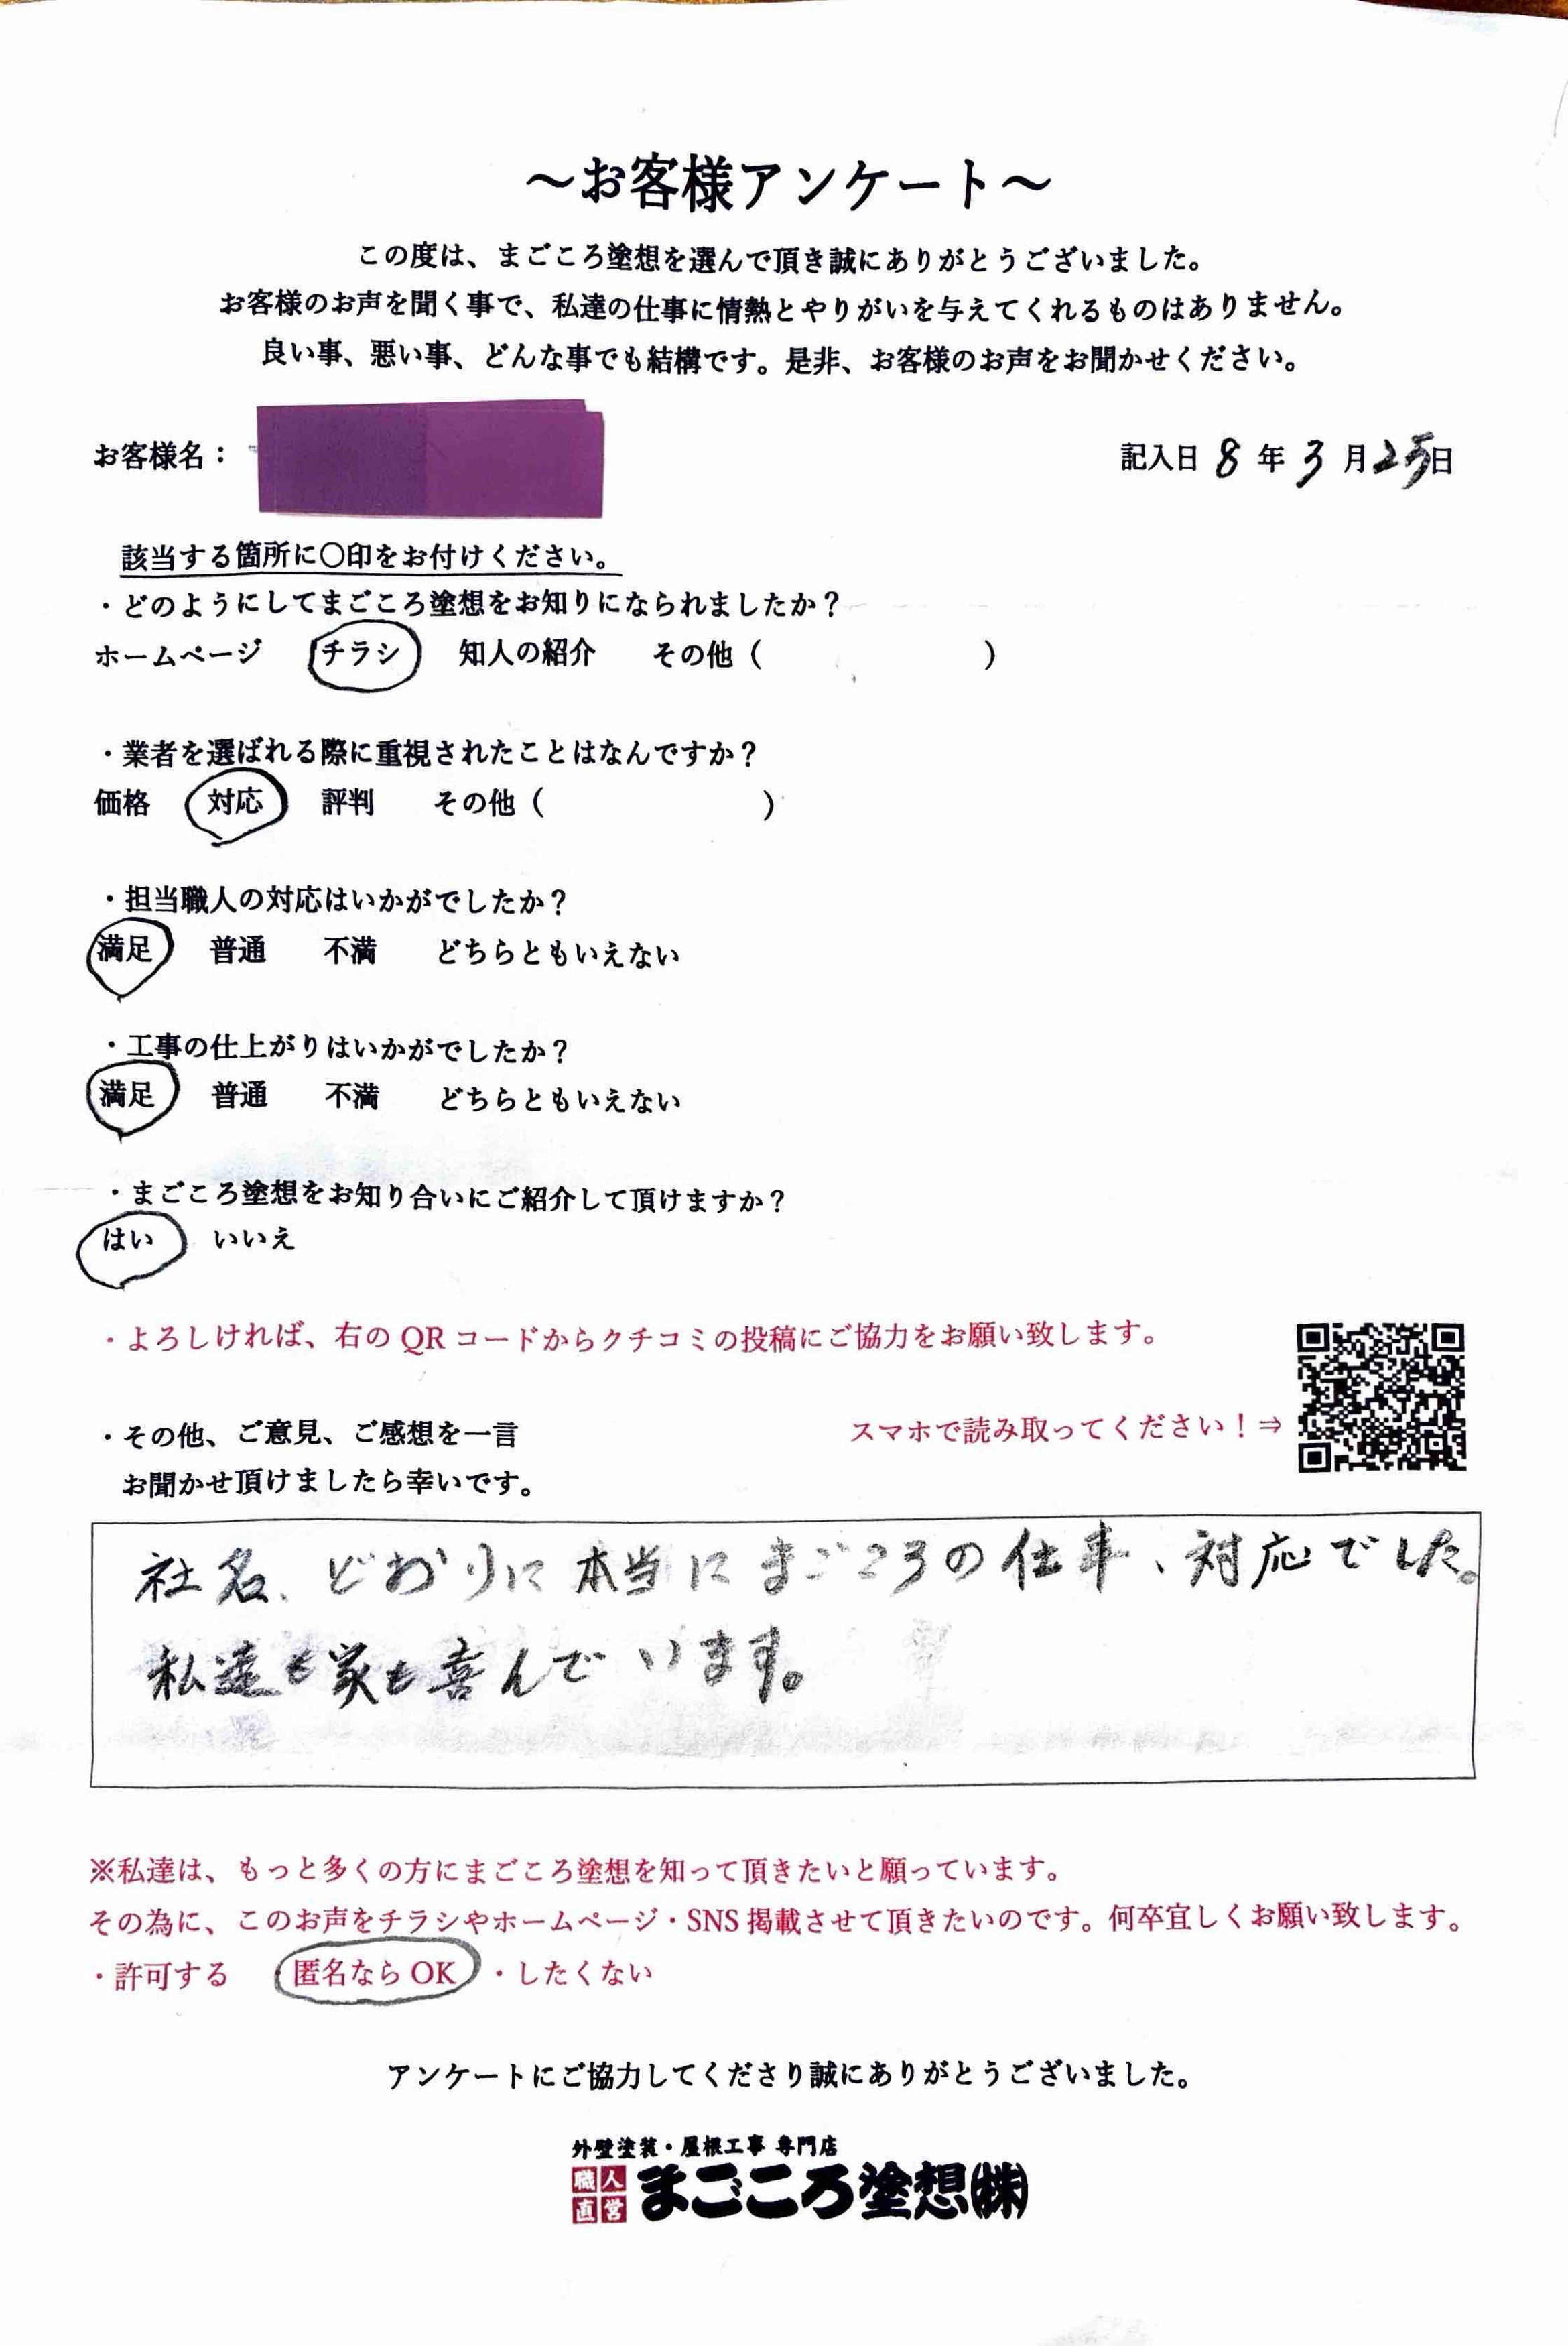 ～お客様アンケート～
この度は、まごころ塗想を選んで頂き誠にありがとうございました。
お客様のお声を聞く事で、私達の仕事に情熱とやりがいを与えてくれるものはありません。
良い事、悪い事、どんな事でも結構です。是非、お客様のお声をお聞かせください。
お客様名： 記入日 8 年 3 月 25 日
該当する箇所に〇印をお付けください。
・どのようにしてまごころ塗想をお知りになられましたか？
ホームページ チラシ 知人の紹介 その他（ ）
・業者を選ばれる際に重視されたことはなんですか？
価格 対応 評判 その他（ ）
・担当職人の対応はいかがでしたか？
満足 普通 不満 どちらともいえない
・工事の仕上がりはいかがでしたか？
満足 普通 不満 どちらともいえない
・まごころ塗想をお知り合いにご紹介して頂けますか？
はい いいえ
・よろしければ、右の QR コードからクチコミの投稿にご協力をお願い致します。
スマホで読み取ってください！⇒
・その他、ご意見、ご感想を一言
お聞かせ頂けましたら幸いです。
社名、どおりに本当にまごころの仕事、対応でした。
私達も家も喜んでいます。
※私達は、もっと多くの方にまごころ塗想を知って頂きたいと願っています。
その為に、このお声をチラシやホームページ・SNS 掲載させて頂きたいのです。何卒宜しくお願い致します。
・許可する 匿名なら OK ・したくない
アンケートにご協力してくださり誠にありがとうございました。
外壁塗装・屋根工事 専門店
職人直営 まごころ塗想㈱